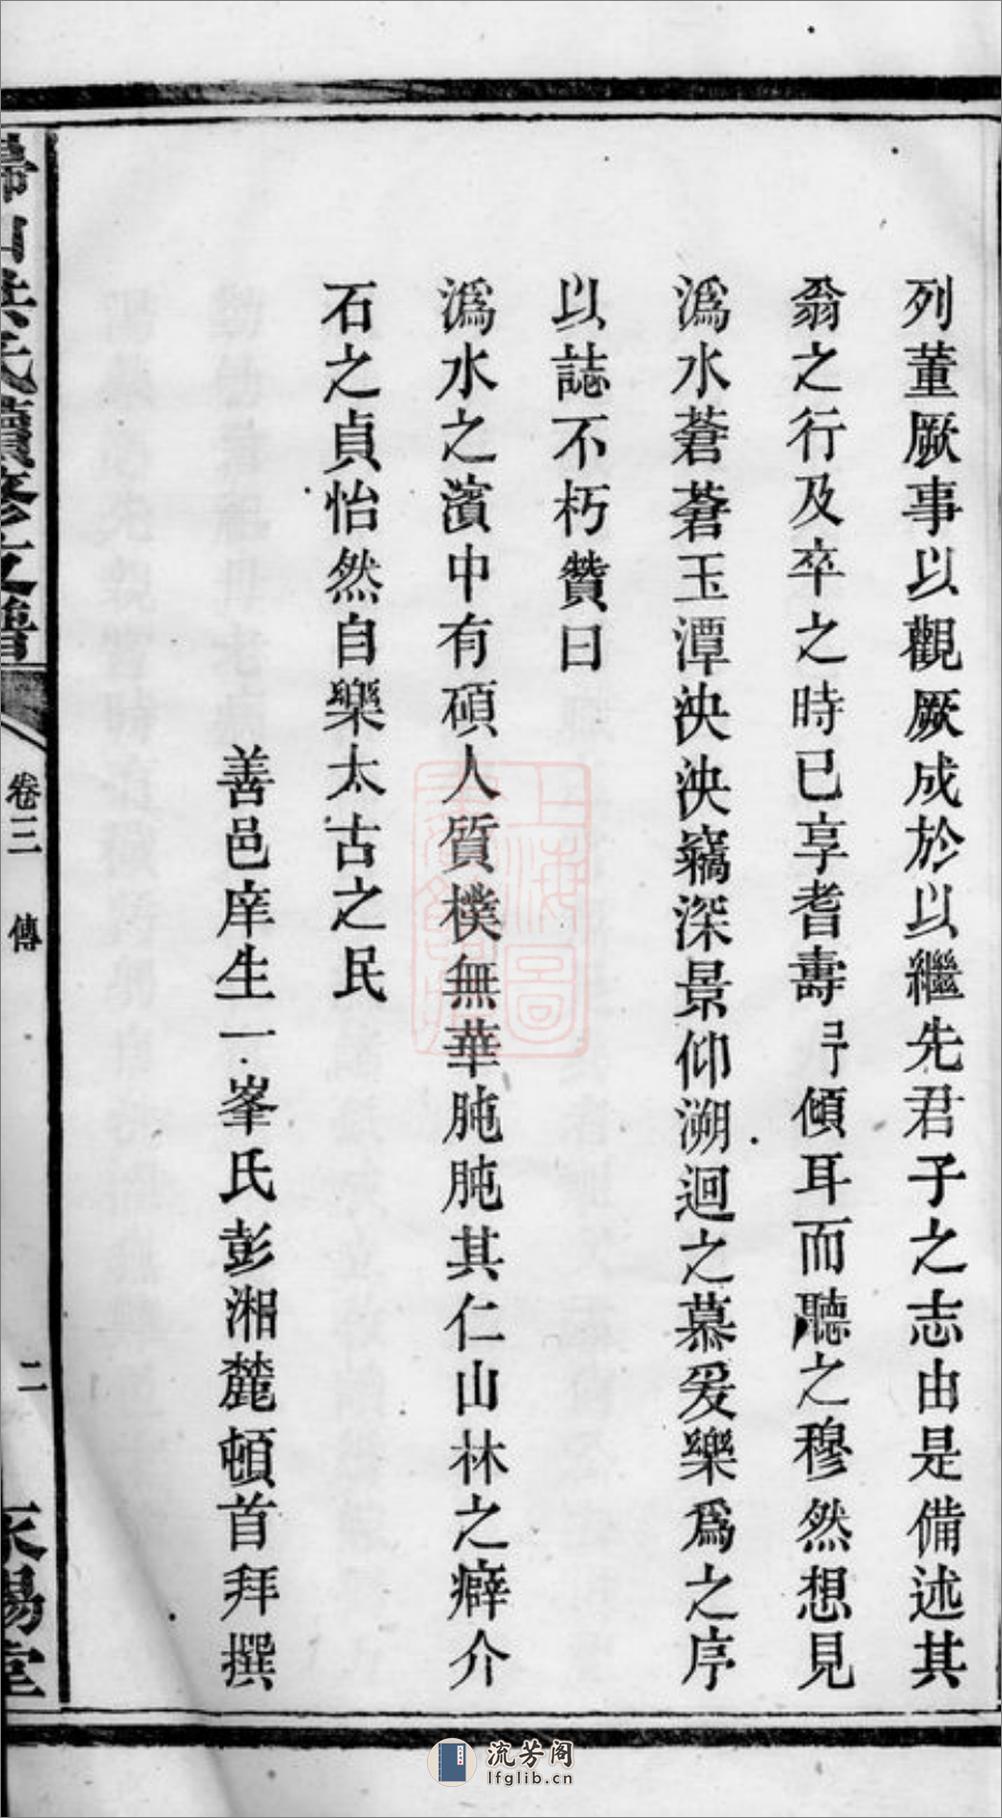 列董厥事以觀厥成於以繼先君子之志由是備述其
翁之行及卒之時已享耆壽予傾耳而聽之穆然想見
溈水蒼蒼玉潭泱泱竊深景仰溯迴之慕爰樂爲之序
以誌不朽贊曰
溈水之濱中有碩人質樸無華肫肫其仁山林之癖介
石之貞怡然自樂太古之民
善邑庠生一峯氏彭湘麓頓首拜撰
洪氏續修支譜
卷三 傳
二
上海圖
流芳阁
lfglib.cn